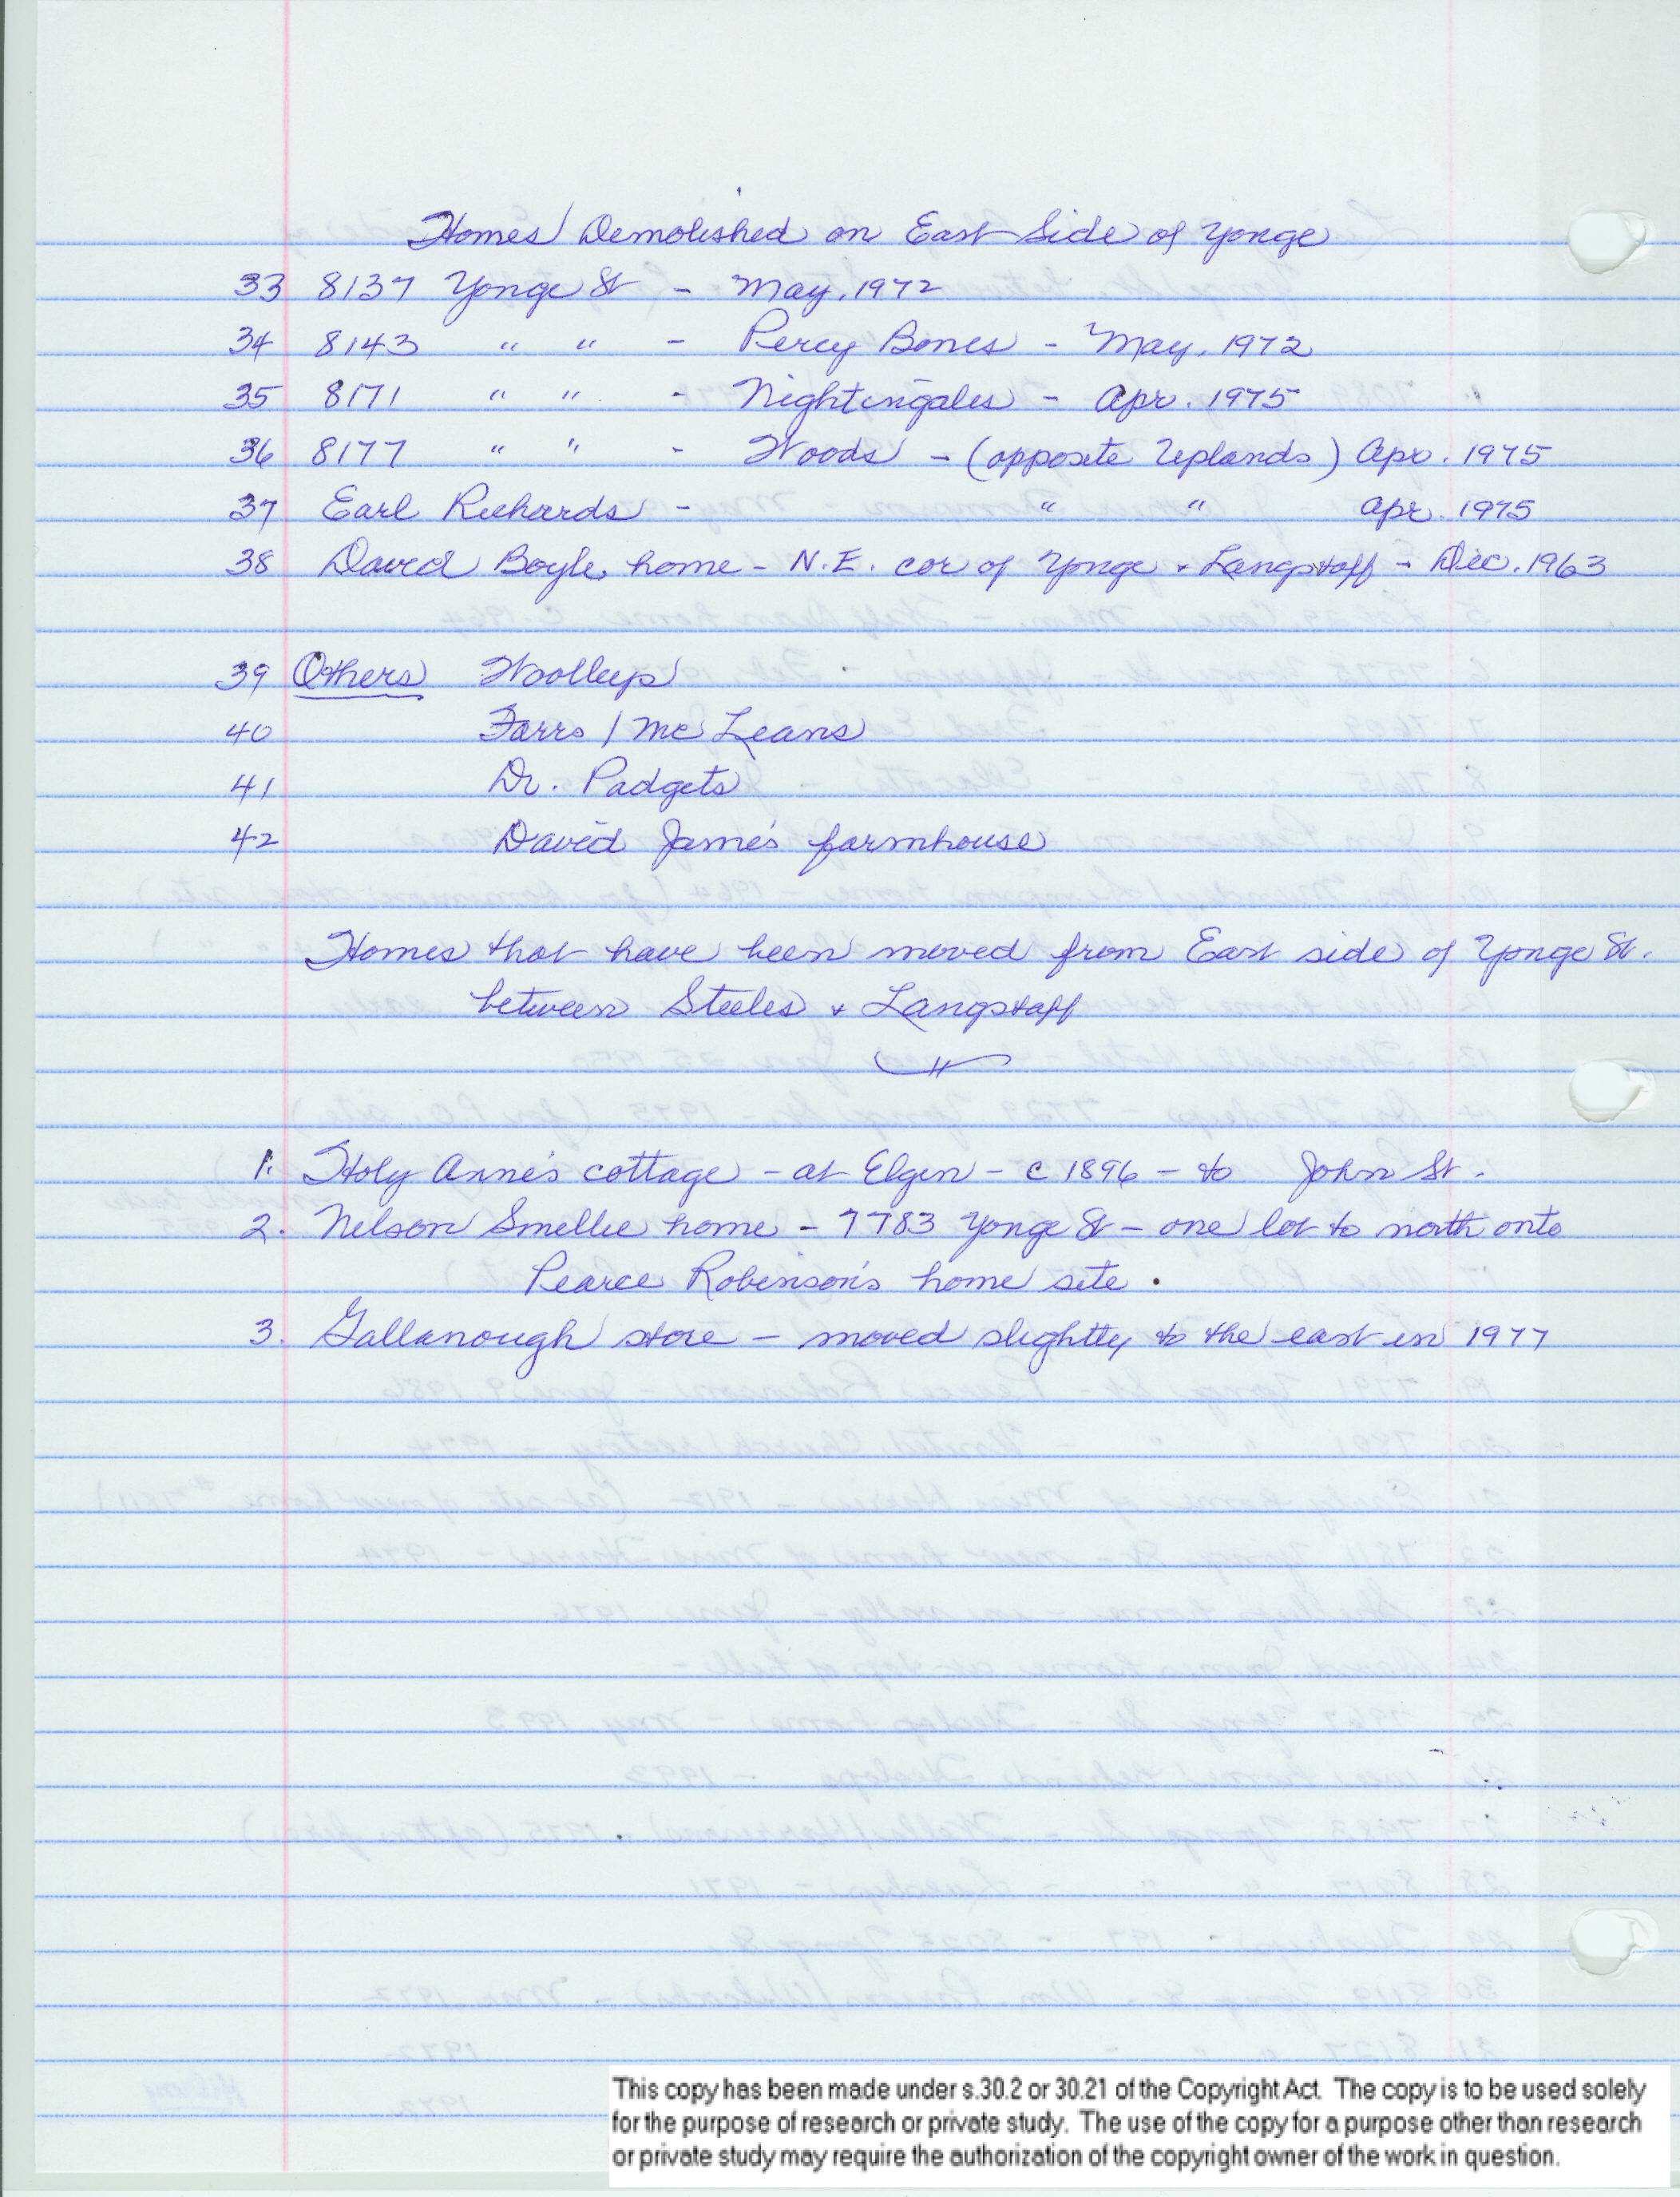 Homes Demolished on East Side of Yonge
33 8137 Yonge St - May, 1972
34 8143 " " - Percy Bones - May, 1972
35 8171 " " - Nightingales - Apr. 1975
36 8177 " " - Woods - (opposite Uplands) Apr. 1975
37 Earl Richards - " " Apr. 1975
38 David Boyle home - N.E. cor of Yonge & Langstaff - Dec. 1963
39 Others Woolleys
40 Farrs / McLeans
41 Dr. Padgets
42 David James farmhouse
Homes that have been moved from East side of Yonge St.
between Steeles & Langstaff
1. Holy Anne's cottage - at Elgin - c 1896 - to John St.
2. Nelson Smellie home - 7783 Yonge St - one lot to north onto
Pearce Robinson's home site.
3. Gallanough store - moved slightly to the east in 1977
This copy has been made under s.30.2 or 30.21 of the Copyright Act. The copy is to be used solely
for the purpose of research or private study. The use of the copy for a purpose other than research
or private study may require the authorization of the copyright owner of the work in question.